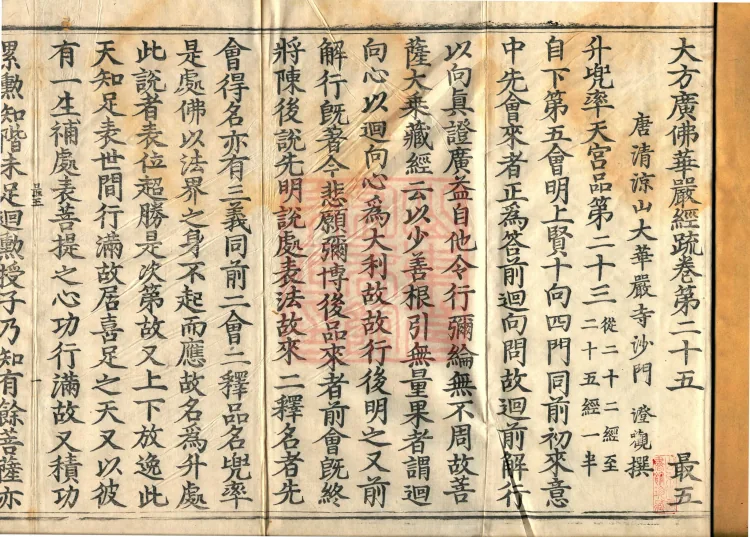 大方廣佛華嚴經䟽卷第二十五 最五
唐清涼山大華嚴寺沙門 澄觀撰
升兜率天宮品第二十三 從二十二經至二十五經一半
自下第五會明上賢十向四門同前初來意
中先會來者正為答前迴向問故迴前解行
以向真證廣益自他令行彌綸無不周故菩
薩大乘藏經云以少善根引無量果者謂迴
向心以迴向心為大利故故行後明之又前
解行既著今悲願彌博後品來者前會既終
將陳後說先明說處表法故來二釋名者先
會得名亦有三義同前二會二釋品名兜率
是處佛以法界之身不起而應故名為升處
此說者表位超勝是次第故又上下放逸此
天知足表世間行滿故居喜足之天又以彼
有一生補處表菩提之心功行滿故又積功
最五 一
累勲知階未足迴勲授子乃知有餘菩薩亦